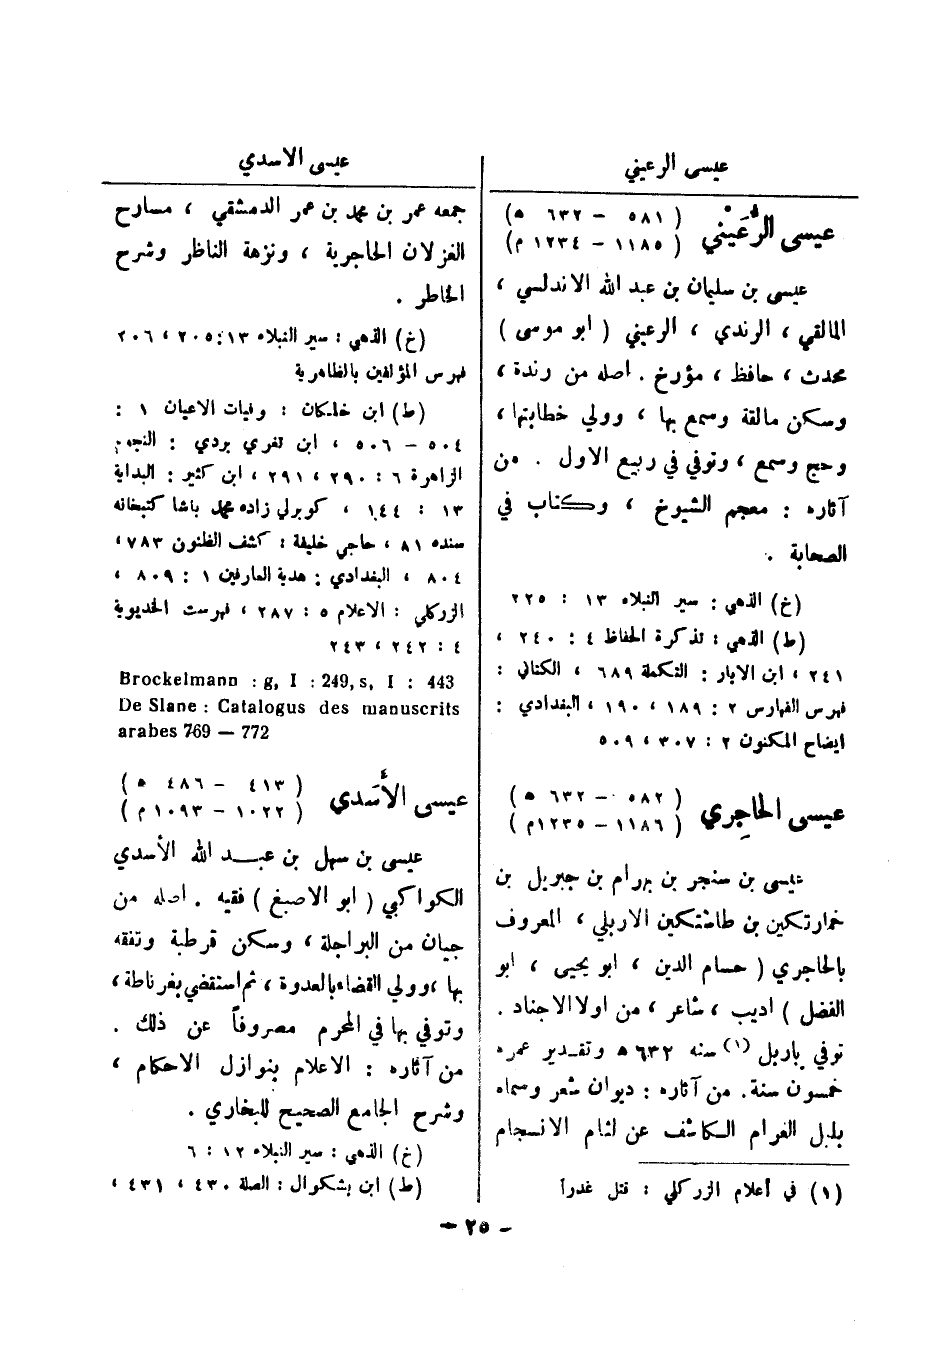 عيسى الرعيني
عيسى الرُّعَيْني ( ٥٨١ - ٦٣٢ ه )
( ١١٨٥ - ١٢٣٤ م )
عيسى بن سليمان بن عبد الله الاندلسي ،
المالقي ، الرندي ، الرعيني ( ابو موسى )
محدث ، حافظ ، مؤرخ . اصله من رندة ،
وسكن مالقة وسمع بها ، وولي خطابتها ،
وحج وسمع ، وتوفي في ربيع الاول . من
آثاره : معجم الشيوخ ، وكتاب في
الصحابة .
(خ) الذهبي : سير النبلاء ١٣ : ٢٢٥
(ط) الذهبي : تذكرة الحفاظ ٤ : ٢٤٠ ،
٢٤١ ، ابن الابار : التكملة ٦٨٩ ، الكتاني :
فهرس الفهارس ٢ : ١٨٩ ، ١٩٠ ، البغدادي :
ايضاح المكنون ٢ : ٣٠٧ ، ٥٠٩
عيسى الحاجِري ( ٥٨٢ - ٦٣٢ ه )
( ١١٨٦ - ١٢٣٥ م )
عيسى بن سنجر بن بهرام بن جبريل بن
خمارتكين بن طاشتكين الاربلي ، المعروف
بالحاجري ( حسام الدين ، ابو يحيى ، ابو
الفضل ) اديب ، شاعر ، من اولاد الاجناد .
توفي باربل (١) سنه ٦٣٢ ه وتقدير عمره
خمسون سنة . من آثاره : ديوان شعر وسماه
بلبل الغرام الكاشف عن لثام الانسجام
(١) في أعلام الزركلي : قتل غدراً
عيسى الاسدي
جمعه عمر بن محمد بن عمر الدمشقي ، مسارح
الغزلان الحاجرية ، ونزهة الناظر وشرح
الخاطر .
(خ) الذهبي : سير النبلاء ١٣ : ٢٠٥ ، ٢٠٦
فهرس المؤلفين بالظاهرية
(ط) ابن خلكان : وفيات الاعيان ١ :
٥٠٤ - ٥٠٦ ، ابن تغري بردي : النجوم
الزاهرة ٦ : ٢٩٠ ، ٢٩١ ، ابن كثير : البداية
١٣ : ١٤٤ ، كوبرلي زاده محمد باشا كتبخانه
سنده ٨١ ، حاجي خليفة : كشف الظنون ٧٨٣ ،
٨٠٤ ، البغدادي : هدية العارفين ١ : ٨٠٩ ،
الزركلي : الاعلام ٥ : ٢٨٧ ، فهرست الخديوية
٤ : ٢٤٢ ، ٢٤٣
Brockelmann : g, I : 249, s, I : 443
De Slane : Catalogus des manuscrits
arabes 769 — 772
عيسى الأَسَدي ( ٤١٣ - ٤٨٦ ه )
( ١٠٢٢ - ١٠٩٣ م )
عيسى بن سهل بن عبد الله الأسدي
الكواكبي ( ابو الاصبغ ) فقيه . اصله من
جيان من البراجلة ، وسكن قرطبة وتفقه
بها ، وولي القضاء بالعدوة ، ثم استقضي بغرناطة ،
وتوفي بها في المحرم مصروفاً عن ذلك .
من آثاره : الاعلام بنوازل الاحكام ،
وشرح الجامع الصحيح للبخاري .
(خ) الذهبي : سير النبلاء ١٢ : ٦
(ط) ابن بشكوال : الصلة ٤٣٠ ، ٤٣١ ،
- ٢٥ -